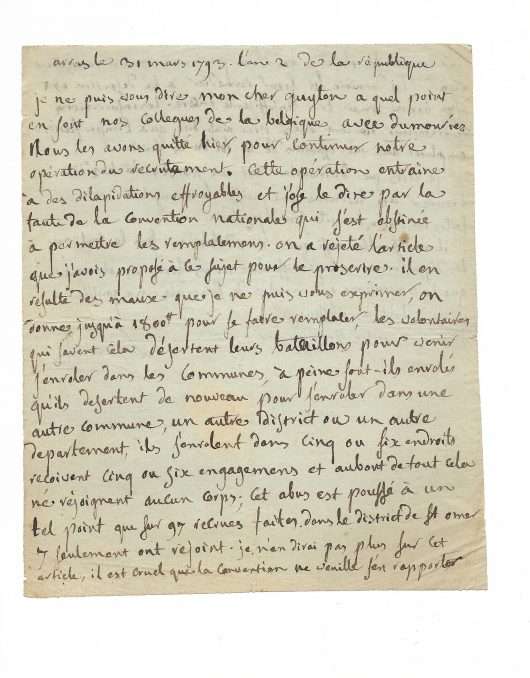 arras le 31 mars 1793. l'an 2 de la république
je ne puis vous dire mon cher guyton a quel point
en sont nos collegues de la belgique avec dumouriez
Nous les avons quitté hier pour continuer notre
opération du recrutement. Cette opération entraine
à des dilapidations effroyables et j'ose le dire par la
faute de la Convention nationale qui s'est obstinée
à permettre les remplacemens. on a rejeté l'article
que j'avois proposé à ce sujet pour le proscrire. il en
résulte des maux que je ne puis vous exprimer, on
donne jusqu'à 1800# pour se faire remplacer les volontaires
qui savent cela désertent leurs bataillons pour venir
s'enroler dans les communes, à peine sont-ils enrolés
qu'ils desertent de nouveau pour s'enroler dans une
autre commune, un autre District ou un autre
departement, ils s'enrolent dans cinq ou six endroits
recoivent cinq ou six engagemens et aubout de tout cela
ne réjoignent aucun corps; Cet abus est poussé à un
tel point que sur 97 recrues faites dans le district de St omer
7 seulement ont rejoint. je n'en dirai pas plus sur cet
article, il est cruel que la Convention ne veuille s'en rapporter